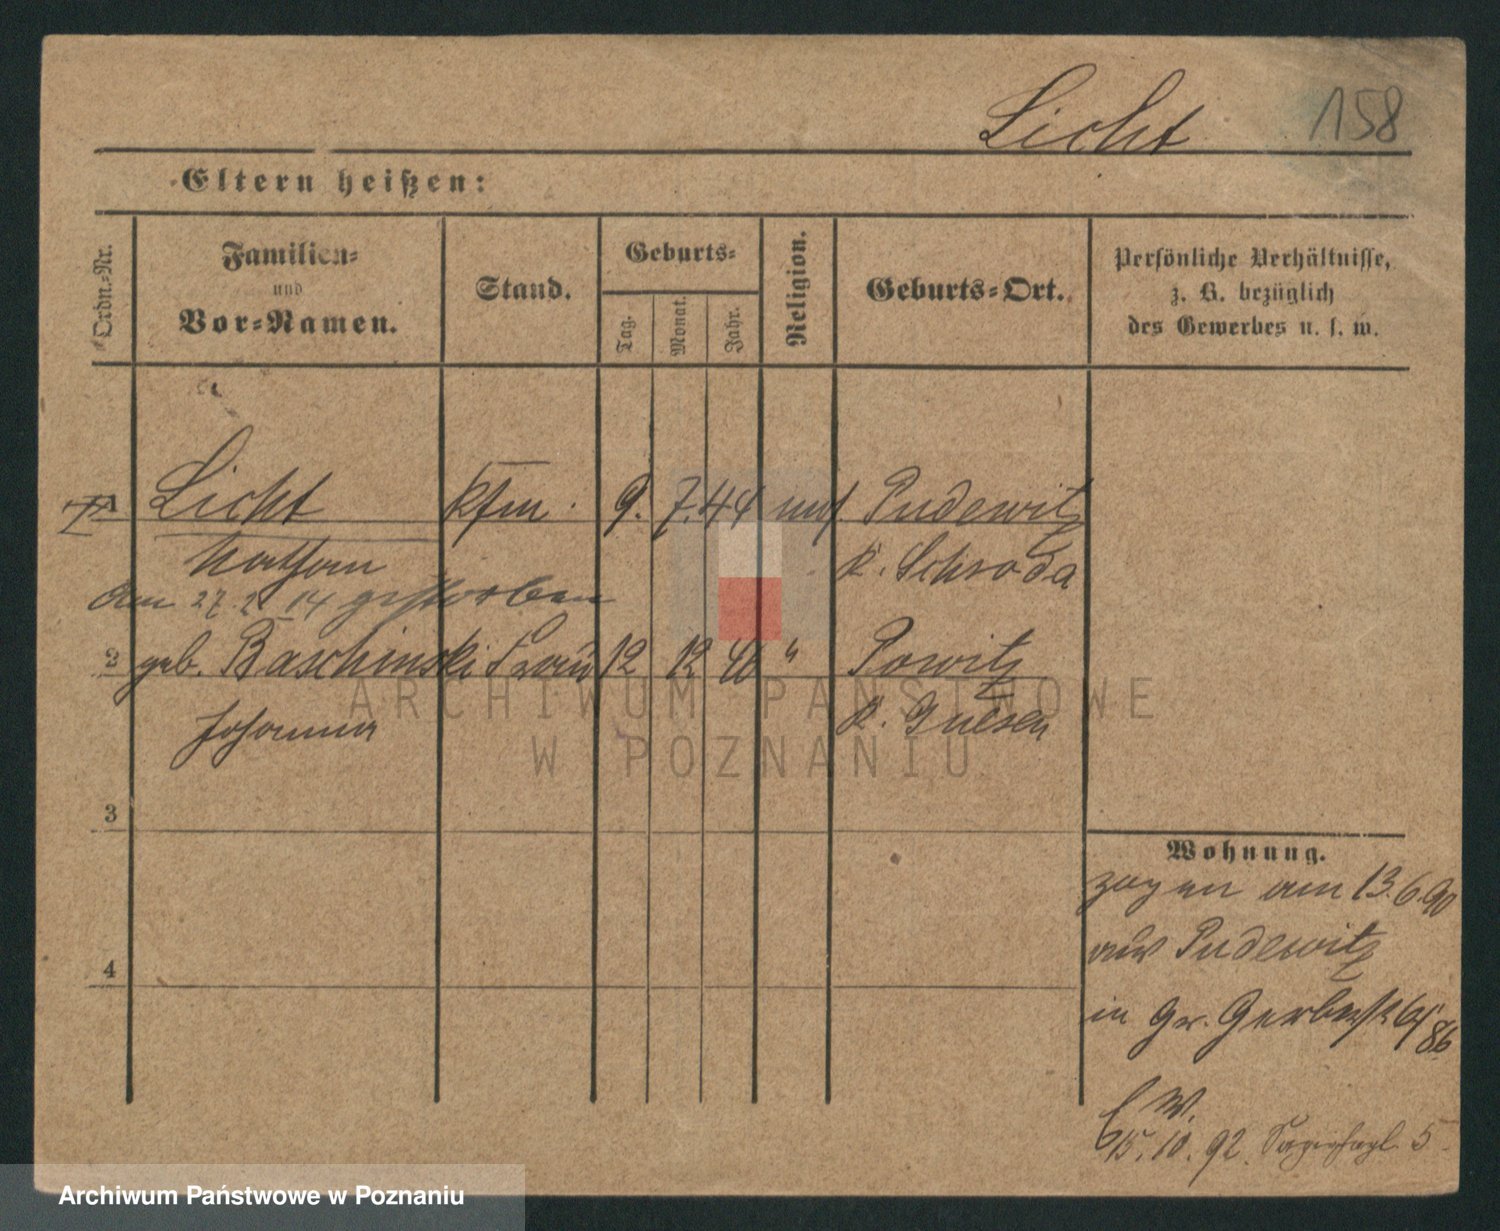 Licht 158
Eltern heißen:
Ordn.-Nr.
Familien-
und
Vor-Namen.
Stand.
Geburts-
Tag.
Monat.
Jahr.
Religion.
Geburts-Ort.
Persönliche Verhältnisse,
z. B. bezüglich
des Gewerbes u. s. w.
1 Licht Kfm. 9. 7. 44 mos. Pudewitz
Nathan K. Schroda
Am 27. 2. 14 gestorben
2 geb. Baschinski Frau 12 12 46 " Powitz
Johanna K. Gnesen
3
4
Wohnung.
zogen am 13.6.90
aus Pudewitz
in Gr. Gerberst
W.
15. 10. 92. 5
ARCHIWUM PAŃSTWOWE
W POZNANIU
Archiwum Państwowe w Poznaniu